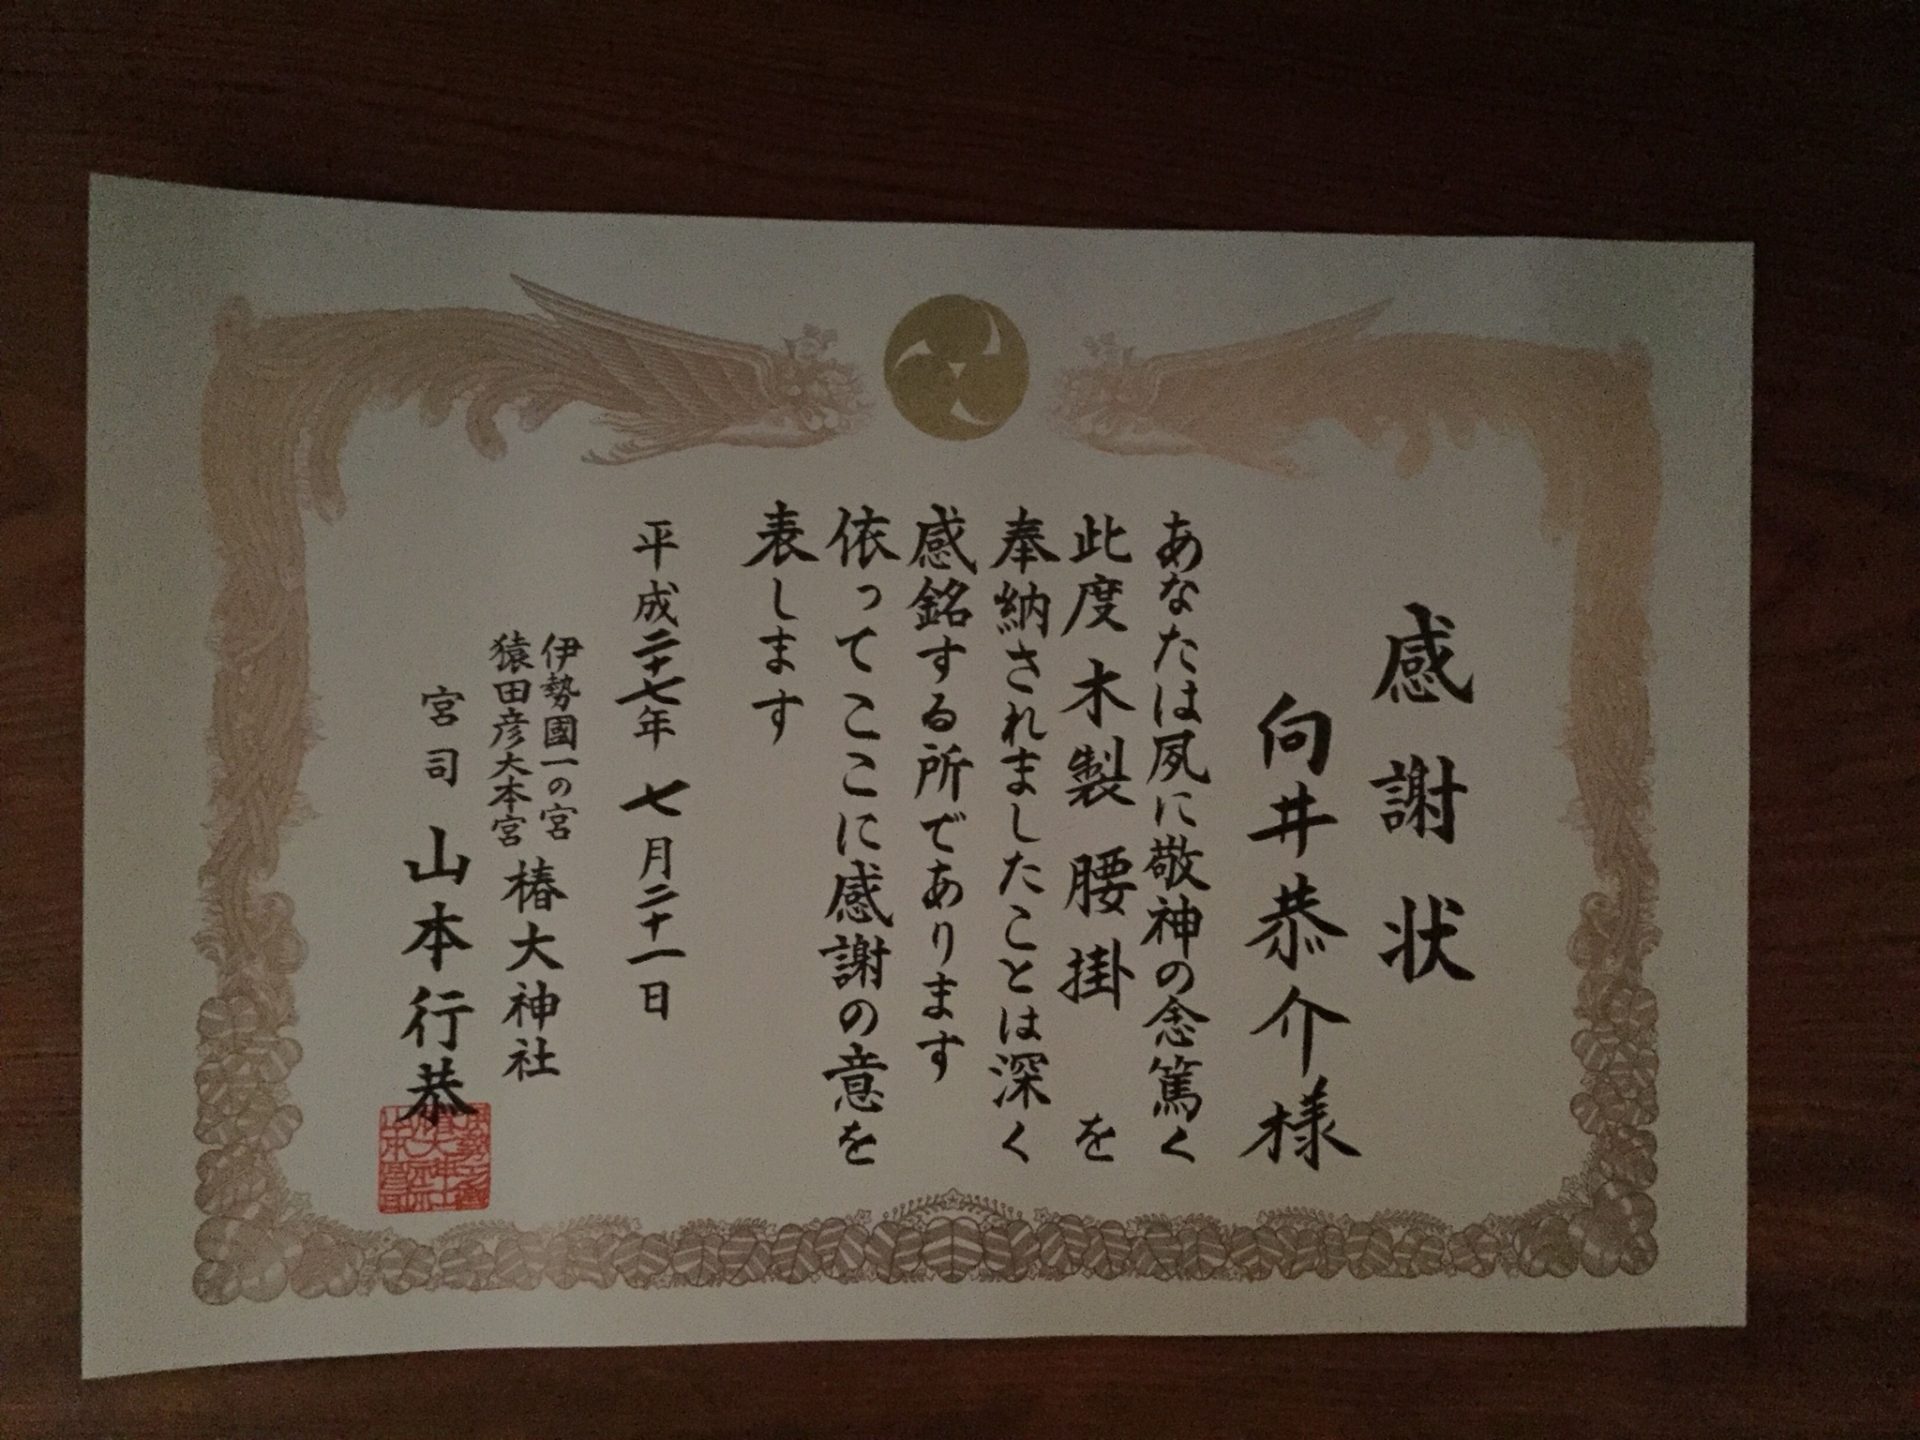 感謝状
向井恭介様
あなたは夙に敬神の念篤く
此度木製腰掛を
奉納されましたことは深く
感銘する所であります
依ってここに感謝の意を
表します
平成二十七年七月二十一日
伊勢國一の宮
猿田彦大本宮
椿大神社
宮司 山本行恭